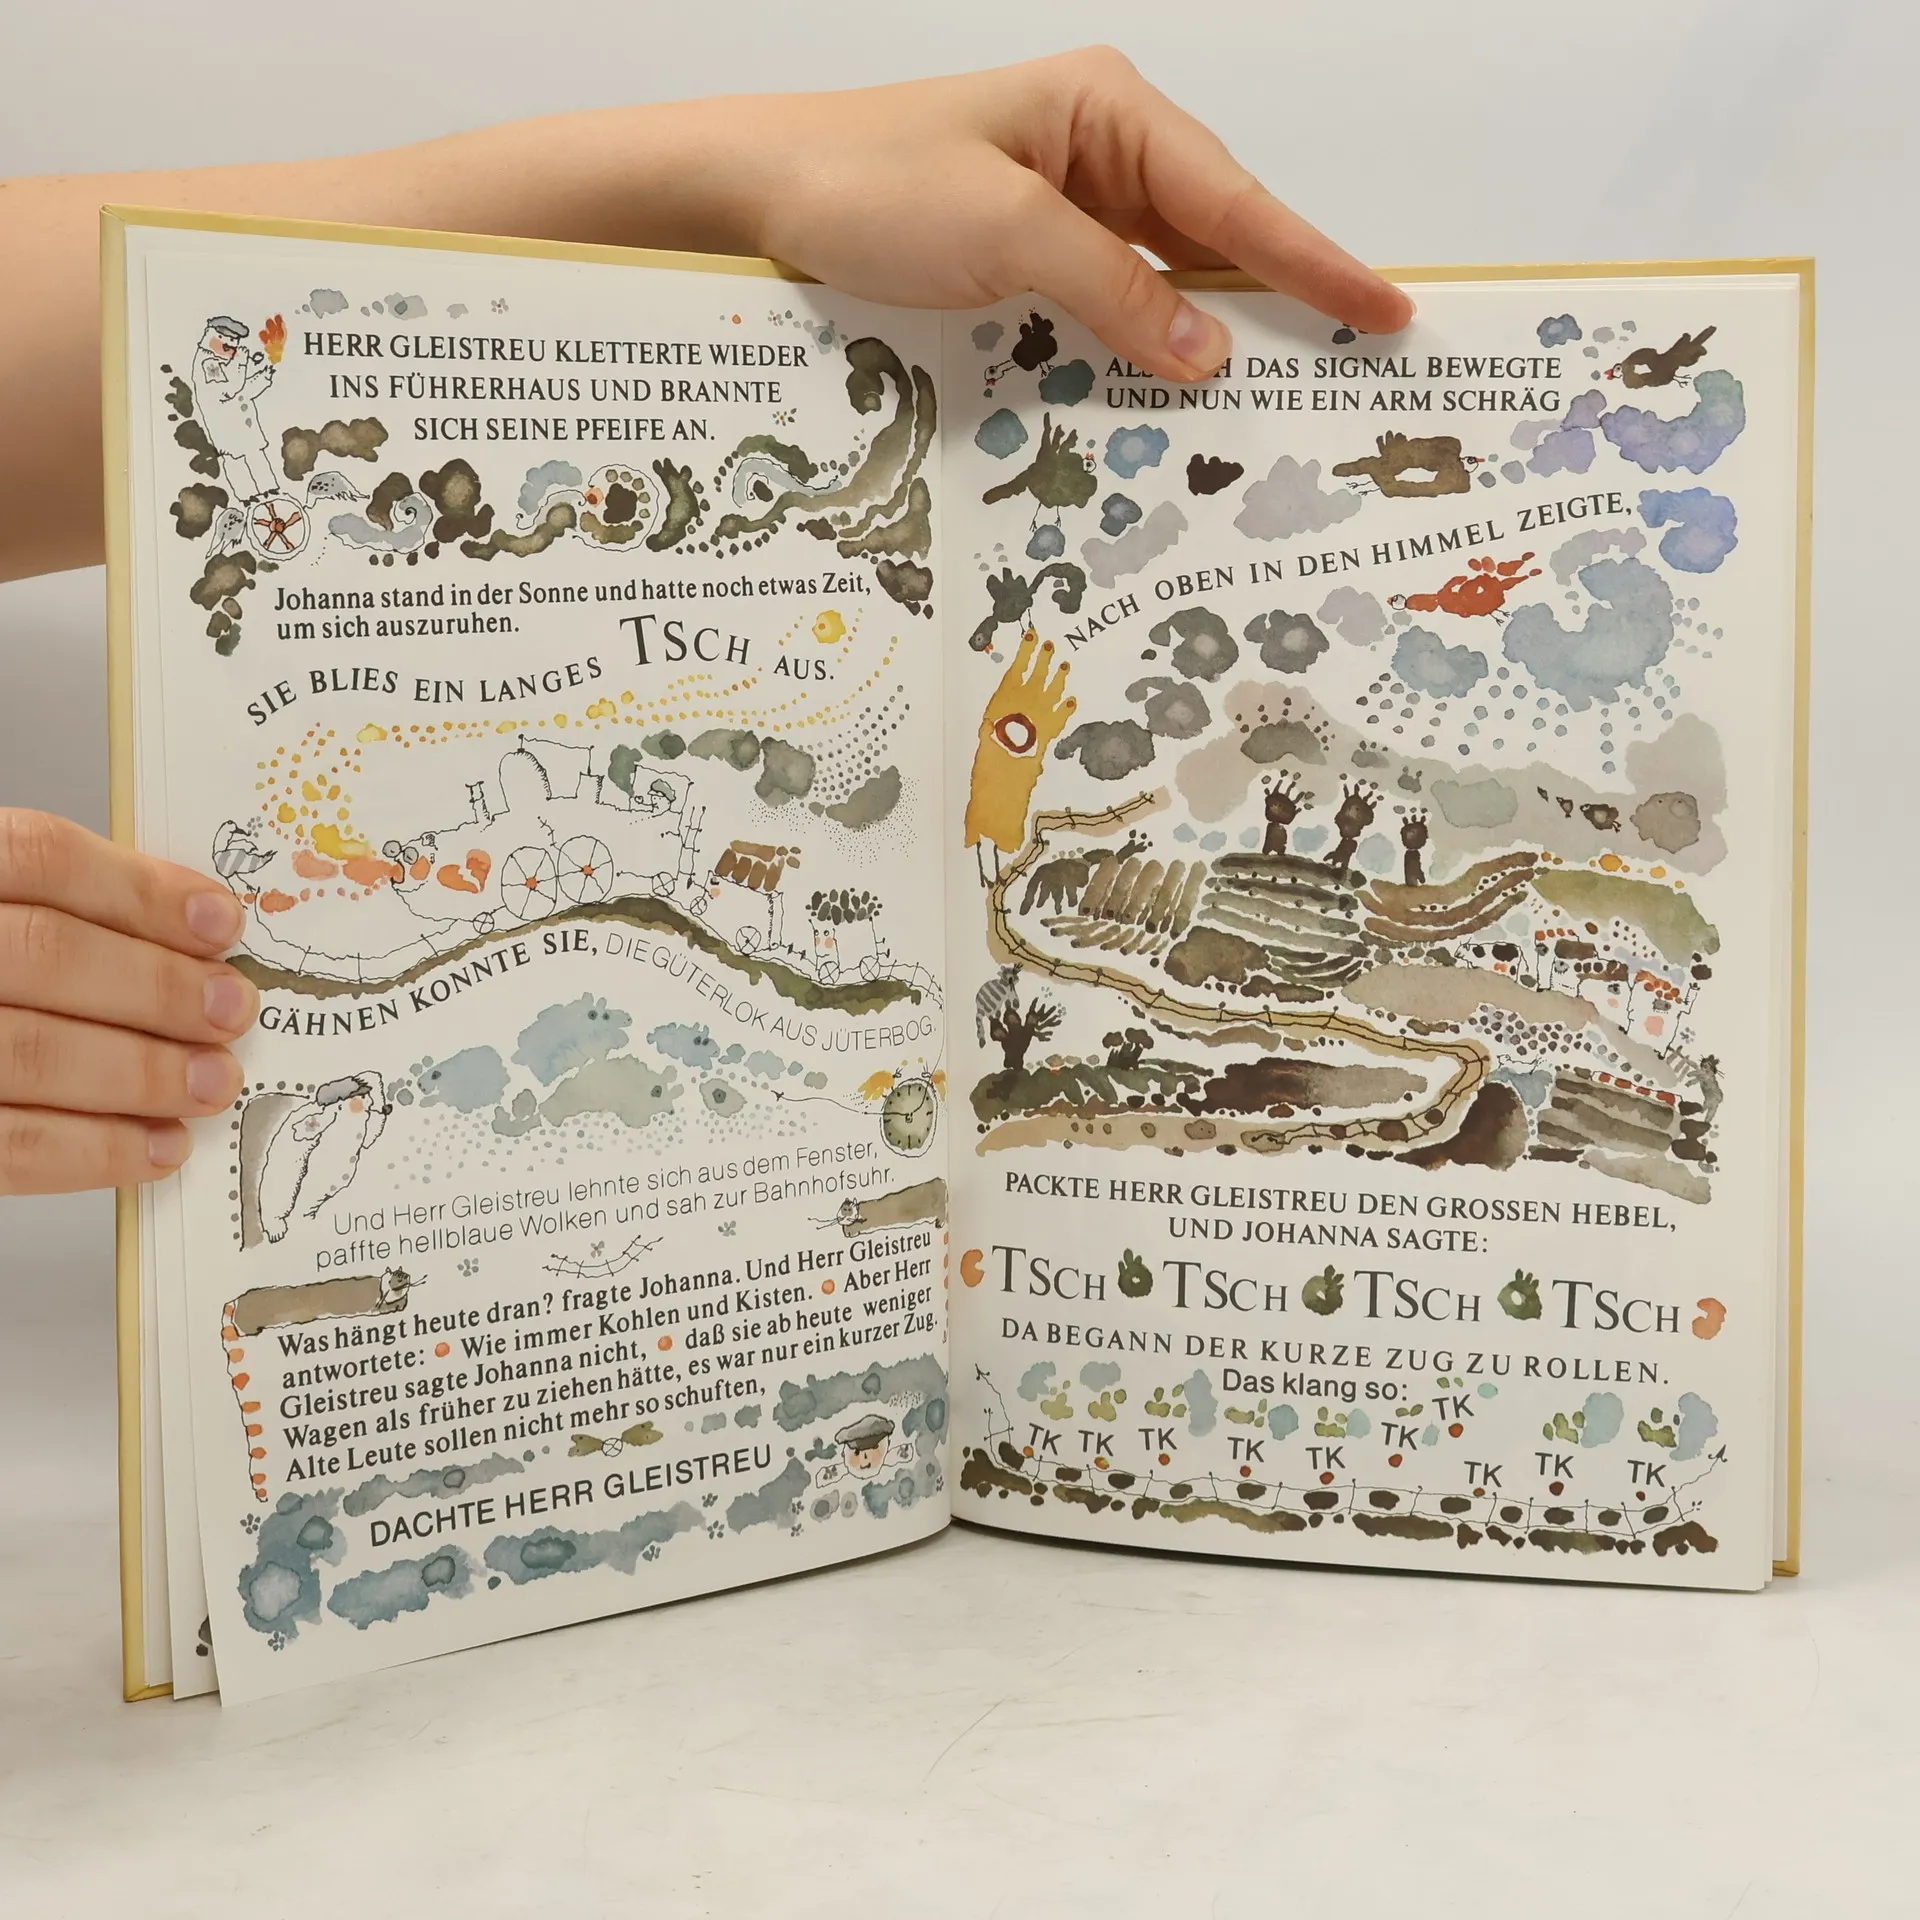 HERR GLEISTREU KLETTERTE WIEDER
INS FÜHRERHAUS UND BRANNTE
SICH SEINE PFEIFE AN.
Johanna stand in der Sonne und hatte noch etwas Zeit,
um sich auszuruhen.
SIE BLIES EIN LANGES TSCH AUS.
GÄHNEN KONNTE SIE, DIE GÜTERLOK AUS JÜTERBOG.
Und Herr Gleistreu lehnte sich aus dem Fenster,
paffte hellblaue Wolken und sah zur Bahnhofsuhr.
Was hängt heute dran? fragte Johanna. Und Herr Gleistreu
antwortete: Wie immer Kohlen und Kisten. Aber Herr
Gleistreu sagte Johanna nicht, daß sie ab heute weniger
Wagen als früher zu ziehen hätte, es war nur ein kurzer Zug.
Alte Leute sollen nicht mehr so schuften,
DACHTE HERR GLEISTREU
DAS SIGNAL BEWEGTE
UND NUN WIE EIN ARM SCHRÄG
NACH OBEN IN DEN HIMMEL ZEIGTE,
PACKTE HERR GLEISTREU DEN GROSSEN HEBEL,
UND JOHANNA SAGTE:
TSCH TSCH TSCH TSCH
DA BEGANN DER KURZE ZUG ZU ROLLEN.
Das klang so:
TK TK TK TK TK TK TK TK TK TK